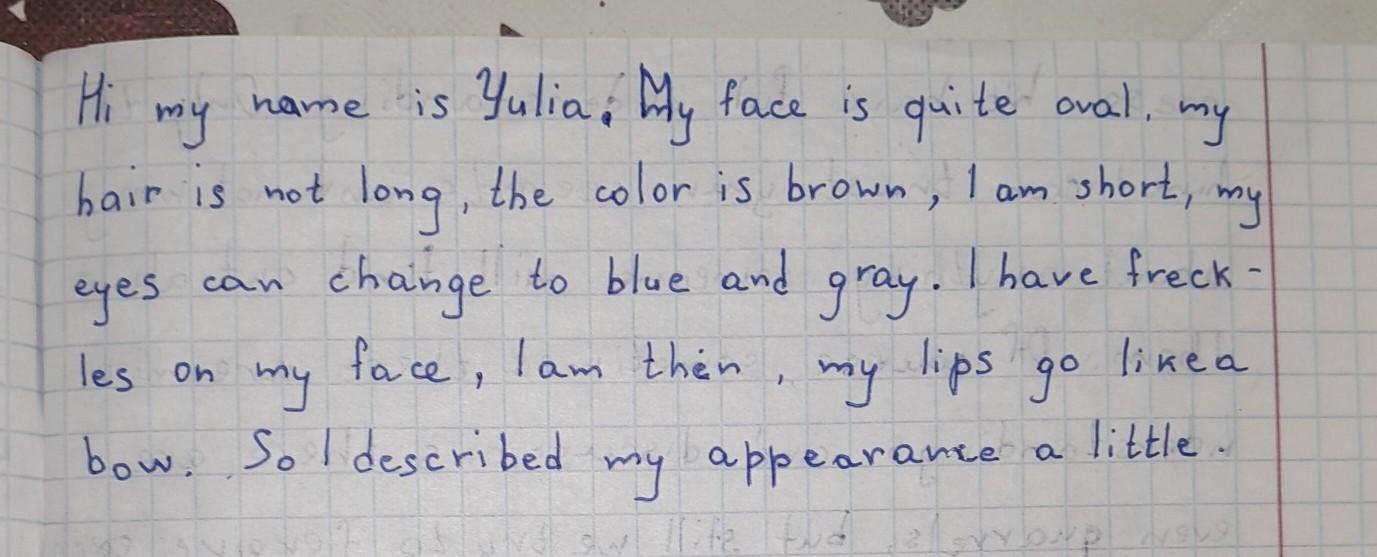 Hi my name is Yulia. My face is quite oval, my
hair is not long, the color is brown, I am short, my
eyes can change to blue and gray. I have freck-
les on my face, I am thin, my lips go like a
bow. So I described my appearance a little.